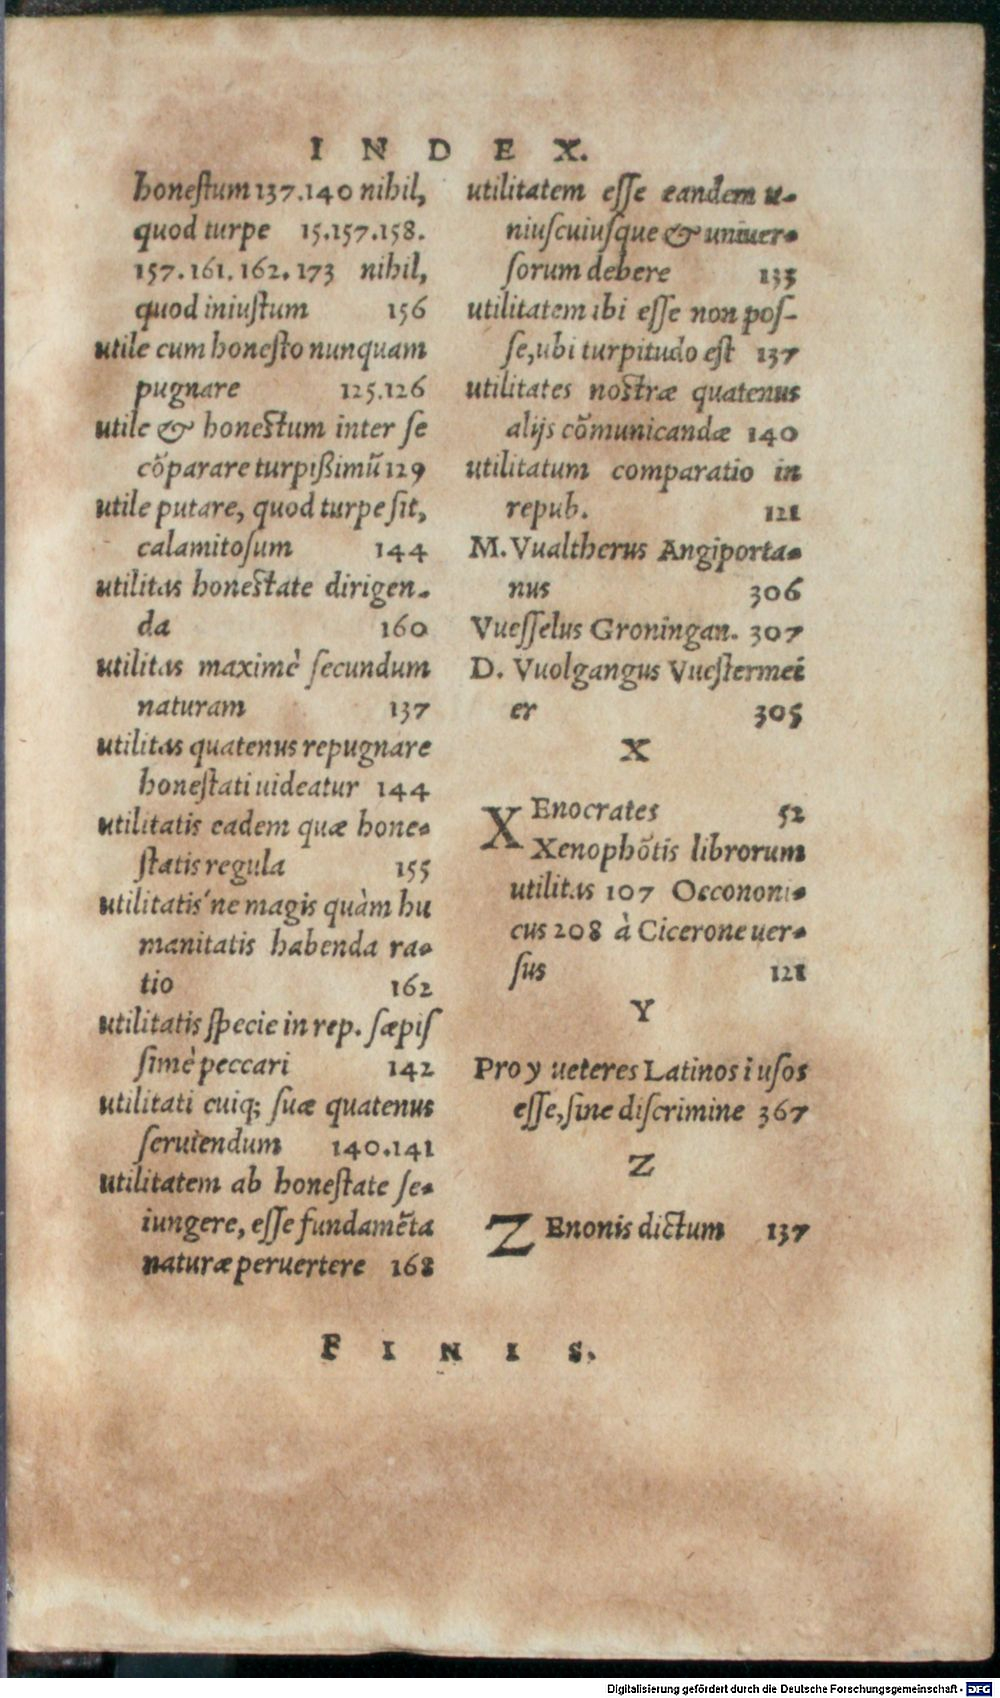 INDEX.
honestum 137.140 nihil,
quod turpe 15.157.158.
157.161.162.173 nihil,
quod iniustum 156
utile cum honesto nunquam
pugnare 125.126
utile & honestum inter se
cõparare turpißimũ 129
utile putare, quod turpe sit,
calamitosum 144
utilitas honestate dirigen-
da 160
utilitas maximè secundum
naturam 137
utilitas quatenus repugnare
honestati uideatur 144
utilitatis eadem quæ hone-
statis regula 155
utilitatis´ne magis quàm hu
manitatis habenda ra-
tio 162
utilitatis specie in rep. sæpis
simè peccari 142
utilitati cuiq; suæ quatenus
seruiendum 140.141
utilitatem ab honestate se-
iungere, esse fundamẽta
naturæ peruertere 168
utilitatem esse eandem u-
niuscuiusque & uniuer-
sorum debere 135
utilitatem ibi esse non pos-
se, ubi turpitudo est 137
utilitates nostræ quatenus
alijs cõmunicandæ 140
utilitatum comparatio in
repub. 121
M. Vualtherus Angiporta-
nus 306
Vuesselus Groningan. 307
D. Vuolgangus Vuestermei
er 305
X
XEnocrates 52
Xenophõtis librorum
utilitas 107 Oeconomi-
cus 208 à Cicerone uer-
sus 121
Y
Pro y ueteres Latinos i usos
esse, sine discrimine 367
Z
ZEnonis dictum 137
FINIS.
Digitalisierung gefördert durch die Deutsche Forschungsgemeinschaft - DFG